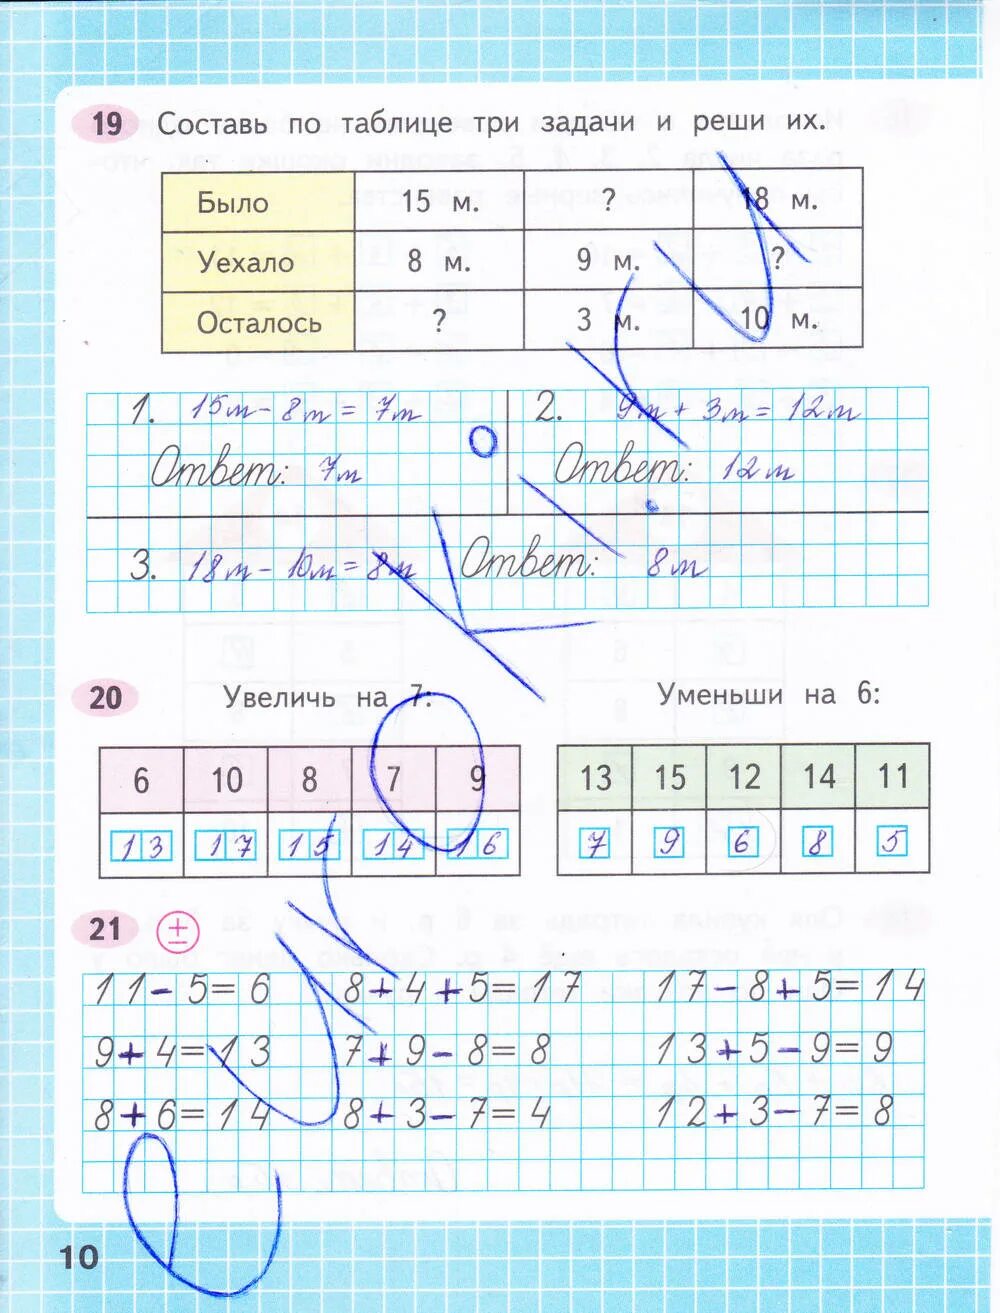 19 Составь по таблице три задачи и реши их.
Было 15 м. ? 18 м.
Уехало 8 м. 9 м. ?
Осталось ? 3 м. 10 м.
1. 15м - 8м = 7м 2. 9м + 3м = 12м
Ответ: 7м Ответ: 12м
3. 18м - 10м = 8м Ответ: 8м
20 Увеличь на 7: Уменьши на 6:
6 10 8 7 9 13 15 12 14 11
13 17 15 14 16 7 9 6 8 5
21 ±
11-5=6 8+4+5=17 17-8+5=14
9+4=13 7+9-8=8 13+5-9=9
8+6=14 8+3-7=4 12+3-7=8
10